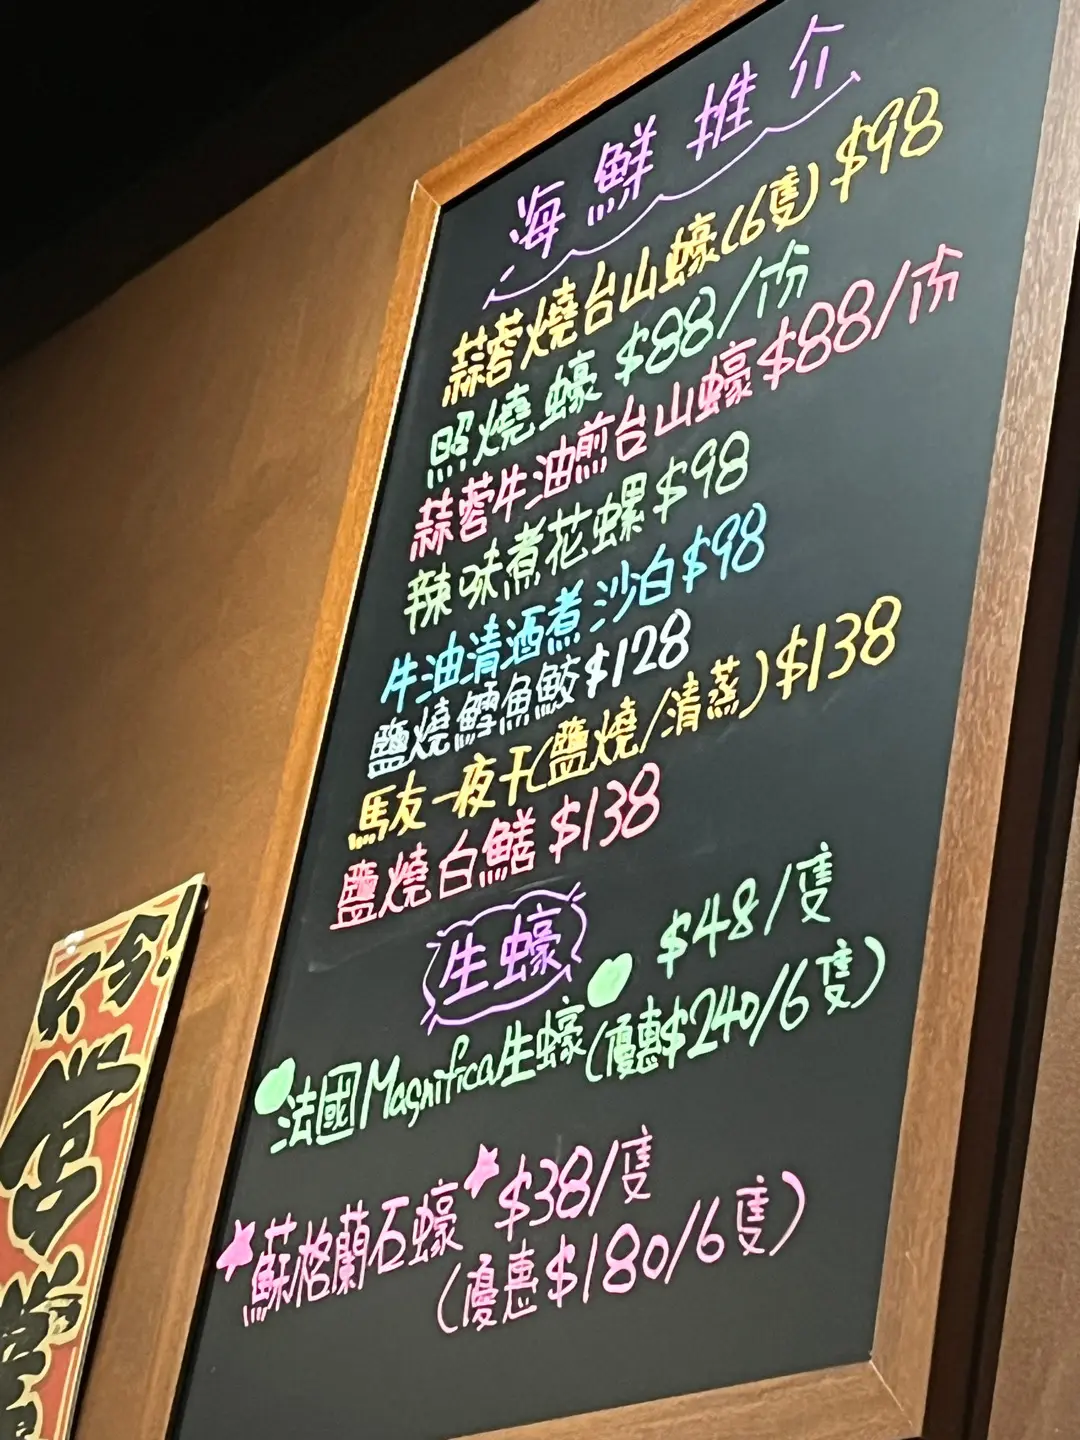 海鮮推介
蒜蓉燒台山蠔(6隻) $98
照燒蠔 $88/份
蒜蓉牛油煎台山蠔 $88/份
辣味煮花螺 $98
牛油清酒煮沙白 $98
鹽燒鱈魚鮫 $128
馬友一夜干(鹽燒/清蒸) $138
鹽燒白鱔 $138
生蠔
$48/隻
法國Magnifica生蠔(優惠$240/6隻)
蘇格蘭石蠔 $38/隻
(優惠$180/6隻)